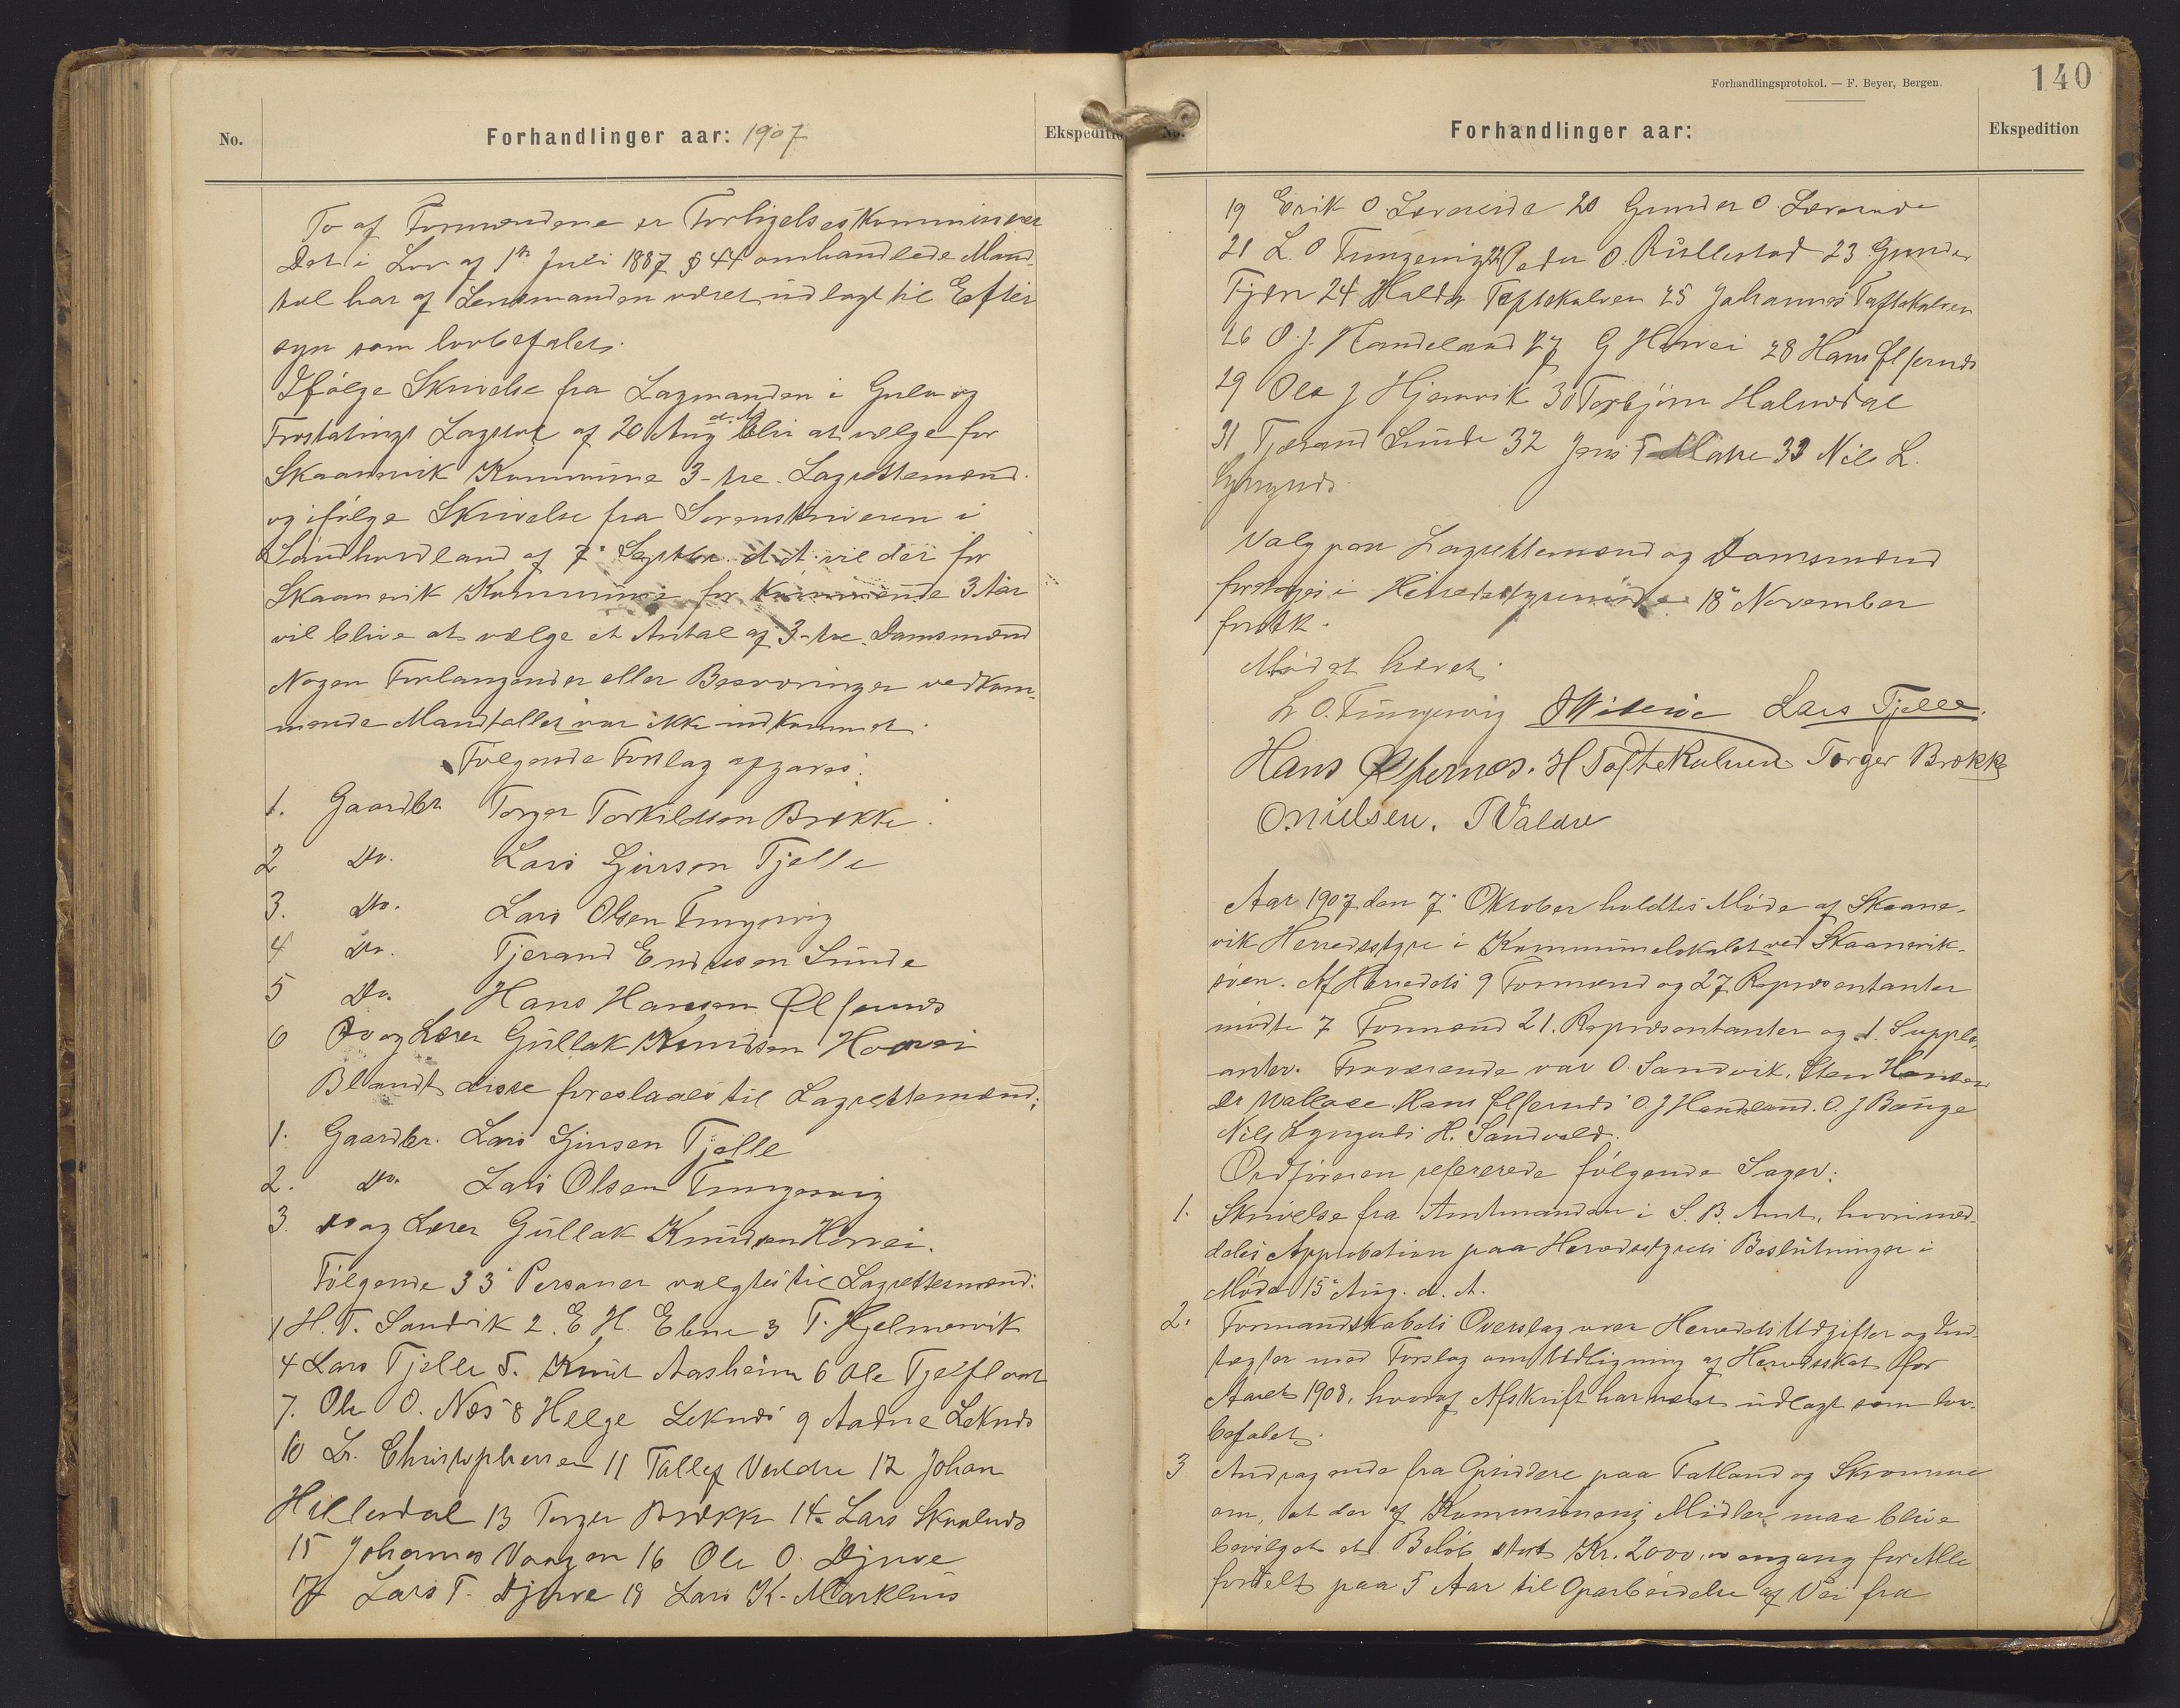 No.
Forhandlinger aar: 1907
Ekspeditio
To af Formændene er Forligelseskommissærer
Det i Lov af 1ste Juli 1887 § 44 omhandlede Mand-
tal har af Lensmanden været udlagt til Efter
syn som lovbefalet.
Ifølge Skrivelse fra Lagmanden i Gula og
Frostatings Lagstol af 20 Aug d. A. bliv at vælge for
Skaanevik Kommune 3-tre Lagrettemænd.
og ifølge Skrivelse fra Sorenskriveren i
Søndhordland af 7de Septbr. d. A. vil der for
Skaanevik Kommune for kommende 3 Aar
vil blive at vælge et Antal af 3-tre Domsmænd
Nogen Forlangender eller Besværinger vedkom-
mende Mandtallet var ikke indkommet.
Følgende Forslag afgaves:
1. Gaardbr Torger Torkildsen Brekke.
2 Do. Lars Gjursen Tjelle
3. Do. Lars Olsen Tungesvig
4 Do. Tjerand Endresen Sunde
5 Do. Hans Hansen Ølfernes
6 Do og Lærer Gullak Knudsen Horvei
Blandt disse foreslaaes til Lagrettemænd:
1. Gaardbr. Lars Gjursen Tjelle
2. Do. Lars Olsen Tungesvig
3. do og Lærer Gullak Knudsen Horvei.
Følgende 33 Personer valgtes til Lagrettemænd:
1 H. T. Sandvik 2. E H. Ebne 3 T. Hjelmervik
4 Lars Tjelle 5. Knut Aasheim 6 Ole Tjelflaat
7. Ole O. Nes 8 Helge Leknes 9 Aadne Leknes
10 Dr. Christophersen 11 Tallef Valdre 12 Johan
Hillesdal 13 Torger Brekke 14 Lars Skaalnes
15 Johannes Vaagen 16 Ole O. Djuve
17 Lars T. Djuve 18 Lars K. Markhus
Forhandlingsprotokol. — F. Beyer, Bergen.
140
No.
Forhandlinger aar:
Ekspedition
19 Erik O.Ævereide 20 Gunder O.Ævereide
21 L. O Tungesvig 22 Peder O. Rullestad 23 Gunder
Fjæren 24 Haldor Toftekalven 25 Johannes Toftekalven
26 O. J. Handeland 27 G Horvei 28 Hans Ølfernes
29 Ole J Hjemvik 30 Torbjørn Halvedal
31 Tjerand Sunde 32 Jens T. Matre 33 Nils L.
Lyngnes
Valg paa Lagrettemænd og Domsmænd
foretages i Herredstyremøde 18de November
førstk.
Mødet hævet.
L O. Tungesvig Lars Tjelle.
Hans Ølfernes. H Toftekalven Torger Brekke
O Nielsen. T Valdre
Aar 1907 den 7de Oktober holdtes Møde af Skaane-
vik Herredsstyre i Kommunelokalet ved Skaanevik-
søen. Af Herredets 9 Formænd og 27 Repræsentanter
mødte 7 Formænd 21. Repræsentanter og 1. Supple-
anter. Fraværende var O. Sandvik, Sten Hansen
Dr Wallace, Hans Ølfernes O. J Handeland. O. J Bauge
Nils Lyngnes H. Sandvold.
Ordføreren refererede følgende Sager:
1. Skrivelse fra Amtmanden i S. B. Amt, hvori med-
deles Approbation paa Herredsstyrets Beslutninger i
Møde 15de Aug. d. A.
2. Formandskabets Overslag over Herredets Udgifter og Ind-
tægter med Forslag om Udligning af Herredsskat for
Aaret 1908, hvoraf Afskrift har været udlagt som lov-
befalet.
3 Andragende fra Opsiddere paa Fatland og Skromme
om, at der af Kommunens Midler maa blive
bevilget et Beløb stort Kr. 2000,00 engang for Alle
fordelt paa 5 Aar til Oparbeidelse af Vei fra